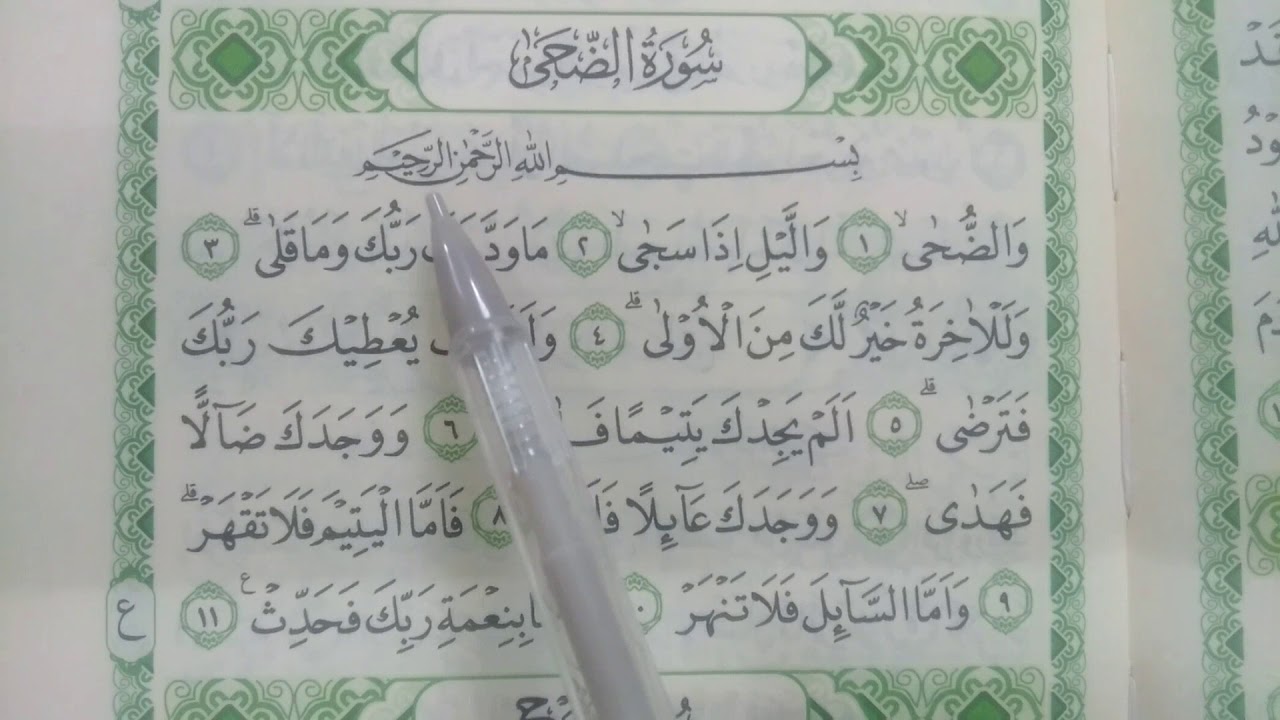 سُوْرَةُ الضُّحٰى
بِسْمِ اللّٰهِ الرَّحْمٰنِ الرَّحِيْمِ
وَالضُّحٰىۙ ١ وَالَّيْلِ اِذَا سَجٰىۙ ٢ مَا رَبُّكَ وَمَا قَلٰىۗ ٣
وَلَلْاٰخِرَةُ خَيْرٌ لَّكَ مِنَ الْاُوْلٰىۗ ٤ يُعْطِيْكَ رَبُّكَ
فَتَرْضٰىۗ ٥ اَلَمْ يَجِدْكَ يَتِيْمًا ٦ وَوَجَدَكَ ضَاۤلًّا
فَهَدٰىۖ ٧ وَوَجَدَكَ عَاۤىِٕلًا ٨ فَاَمَّا الْيَتِيْمَ فَلَا تَقْهَرْۗ
٩ وَاَمَّا السَّاۤىِٕلَ فَلَا تَنْهَرْ بِنِعْمَةِ رَبِّكَ فَحَدِّثْ ࣖ ١١
ع